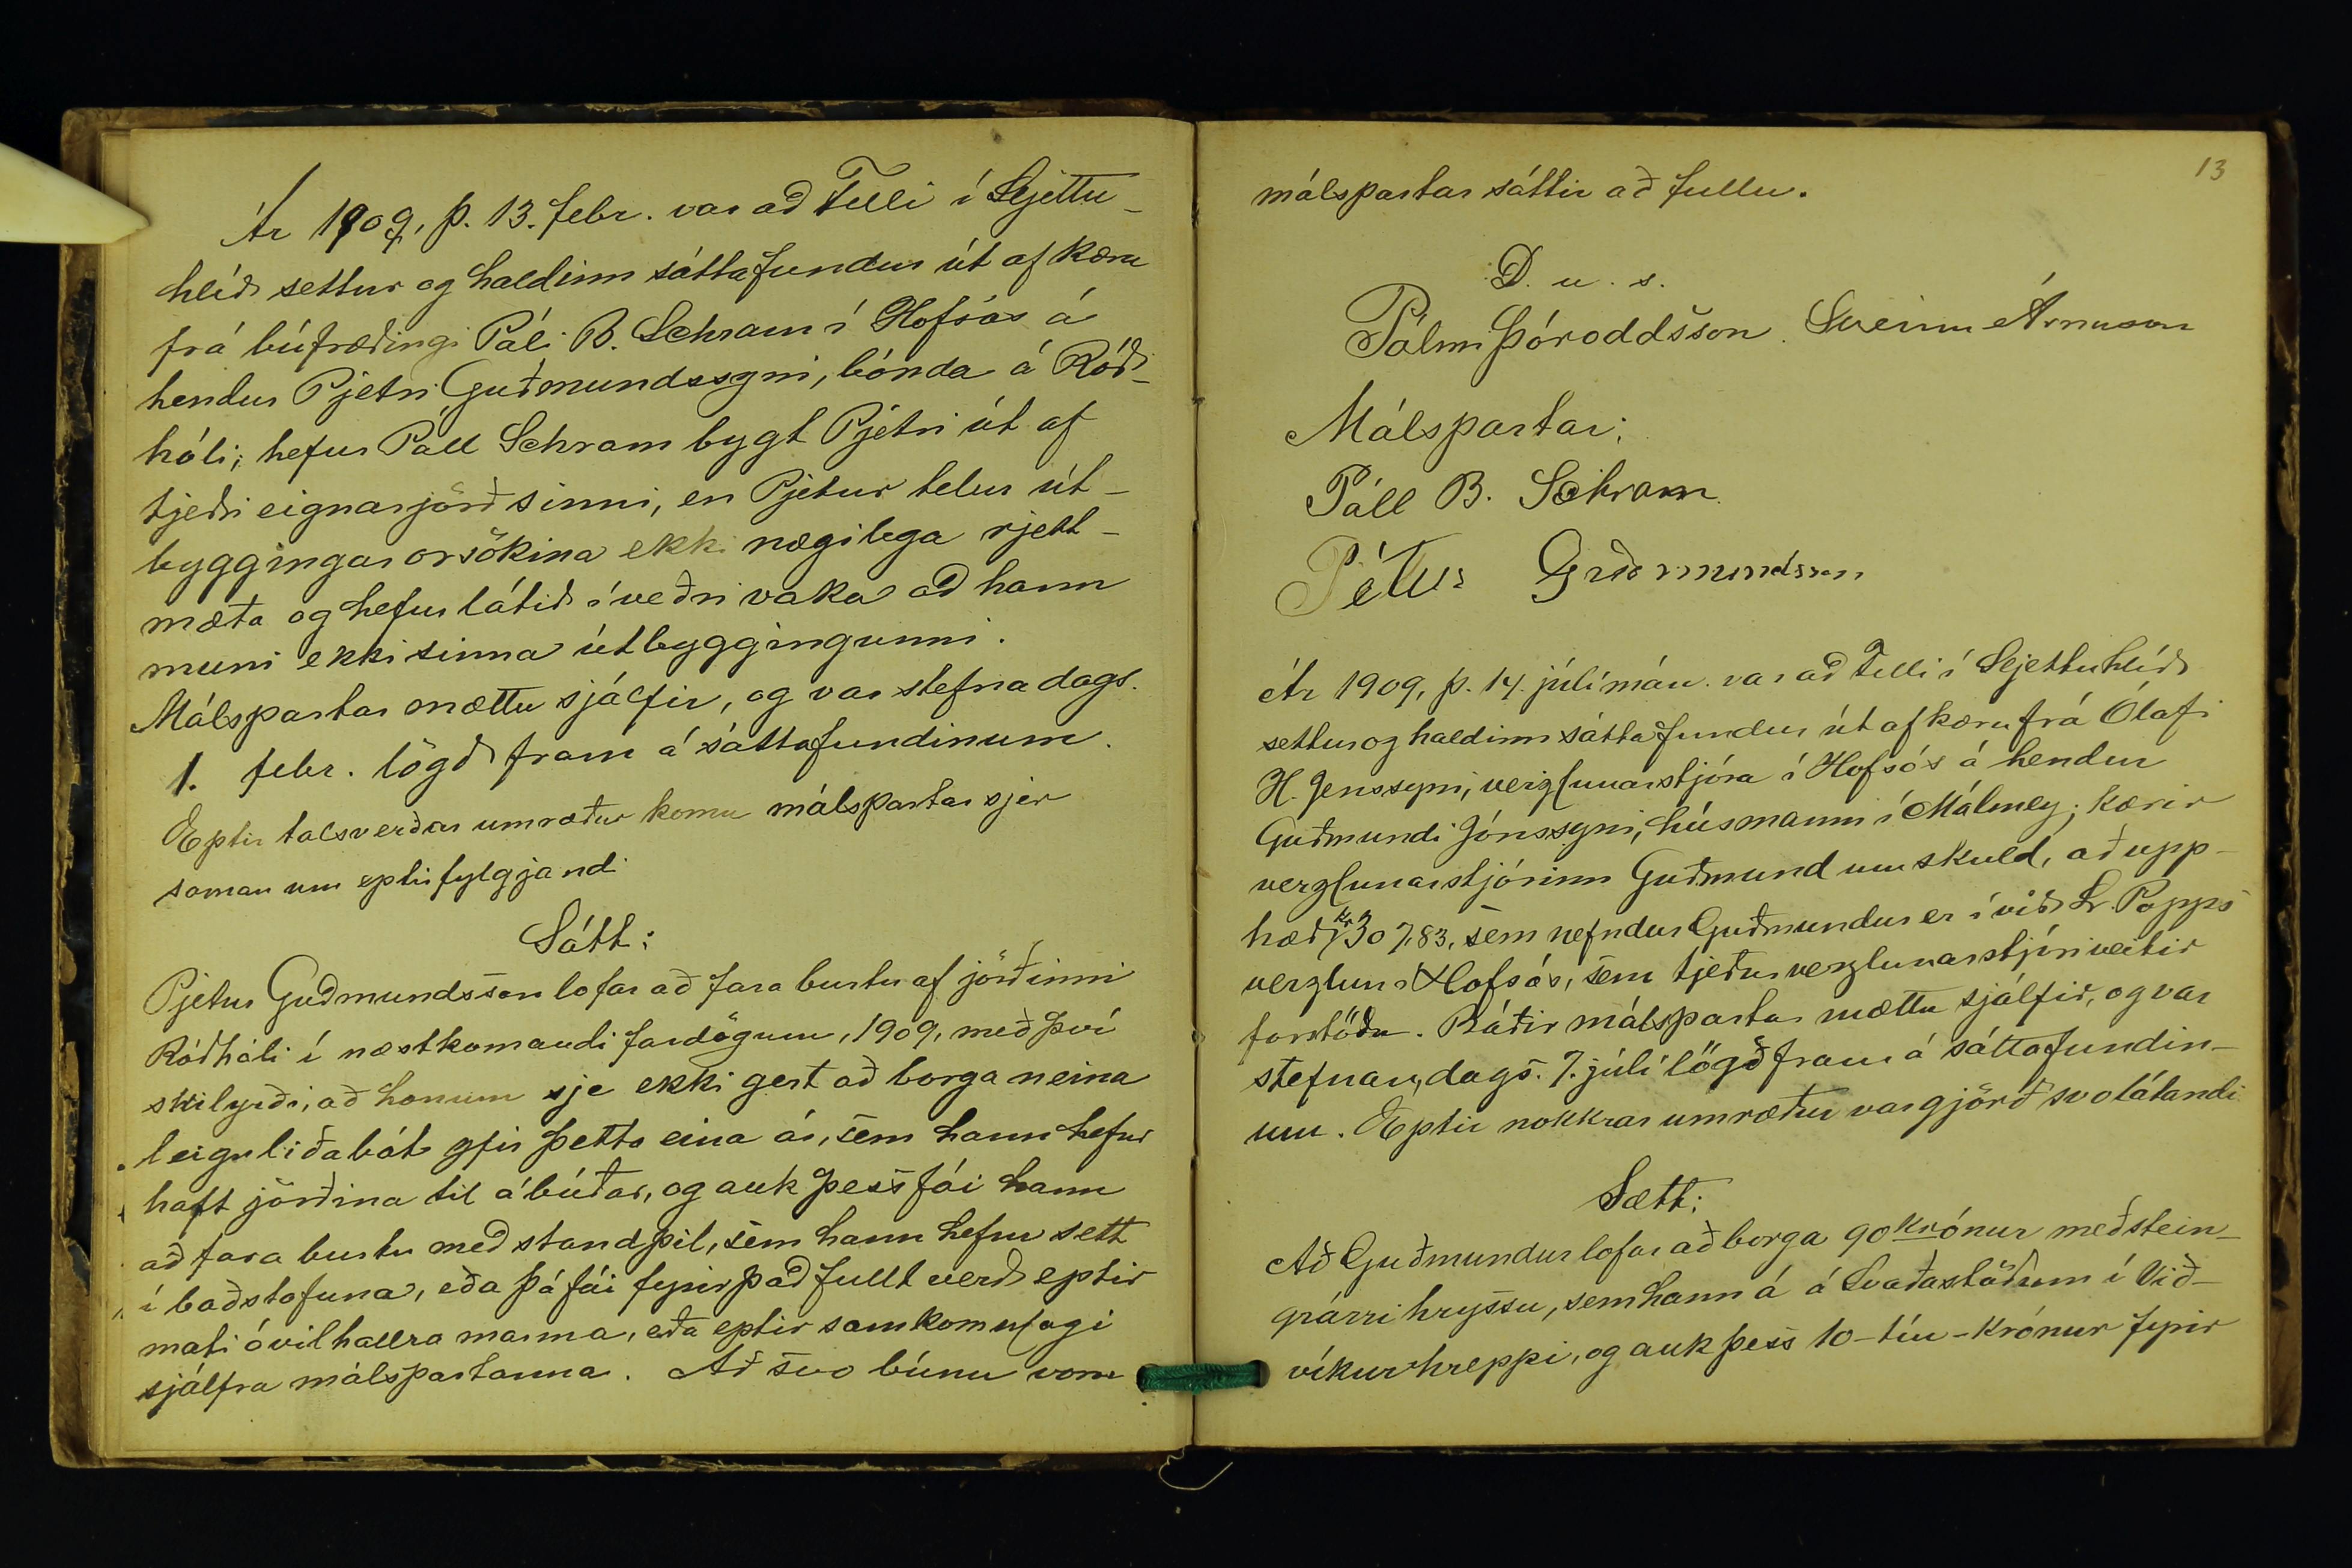 Ár 1909, þ. 13. febr. var að Felli í Sljettu-
hlíð settur og haldinn sáttafundur út af kæru
frá búfræðingi Páli B. Schram í Hofsós á
hendur Pjetri Guðmundssyni, bónda á Róð-
hóli; hefur Páll Schram bygt Pjetri út af
tjeðri eignarjörð sinni, en Pjetur telur út-
byggingar orsökina ekki nægilega rjett-
mæta og hefur látið í veðri vaka að hann
muni ekki sinna útbyggingunni.
Málspartar mættu sjálfir, og var stefna dags.
1. febr. lögð fram á sáttafundinum.
Eptir talsverðar umræður komu málspartar sjer
saman um eptirfylgjandi
Sátt:
Pjetur Guðmundsson lofar að fara burtu af jörðinni
Róðhóli í næstkomandi fardögum, 1909, með því
skilyrði, að honum sje ekki gert að borga neina
leiguliðabót yfir þetta eina ár, sem hann hefur
haft jörðina til ábúðar, og auk þess fái hann
að fara burtu með standþil, sem hann hefur sett
í baðstofuna, eða þá fái fyrir það fullt verð eptir
mati óvilhallra manna, eða eptir samkomulagi
sjálfra málspartanna. Að svo búnu voru
13
málspartar sáttir að fullu.
D. u. s.
Pálmi Þóroddsson. Sveinn Árnason
Málspartar:
Páll B. Schram
Pétur Guðmundsson
Ár 1909, þ. 14. júlímán. var að Felli í Sljettuhlíð
settur og haldinn sáttafundur út af kæru frá Ólafi
H. Jenssyni, verzlunarstjóra í Hofsós á hendur
Guðmundi Jónssyni, húsmanni í Málmey; kærir
verzlunarstjórinn Guðmund um skuld, að upp-
hæð kr 307,83, sem nefndur Guðmundur er í við L. Popps
verzlun í Hofsós, sem tjeður verzlunarstjóri veitir
forstöðu. Báðir málspartar mættu sjálfir, og var
stefnan, dags. 7. júlí lögð fram á sáttafundin-
um. Eptir nokkrar umræður var gjörð svolátandi
Sætt:
Að Guðmundur lofar að borga 90 krónur með stein-
grárri hryssu, sem hann á á Svaðastöðum í Við-
víkurhreppi, og auk þess 10 - tíu - krónur fyrir